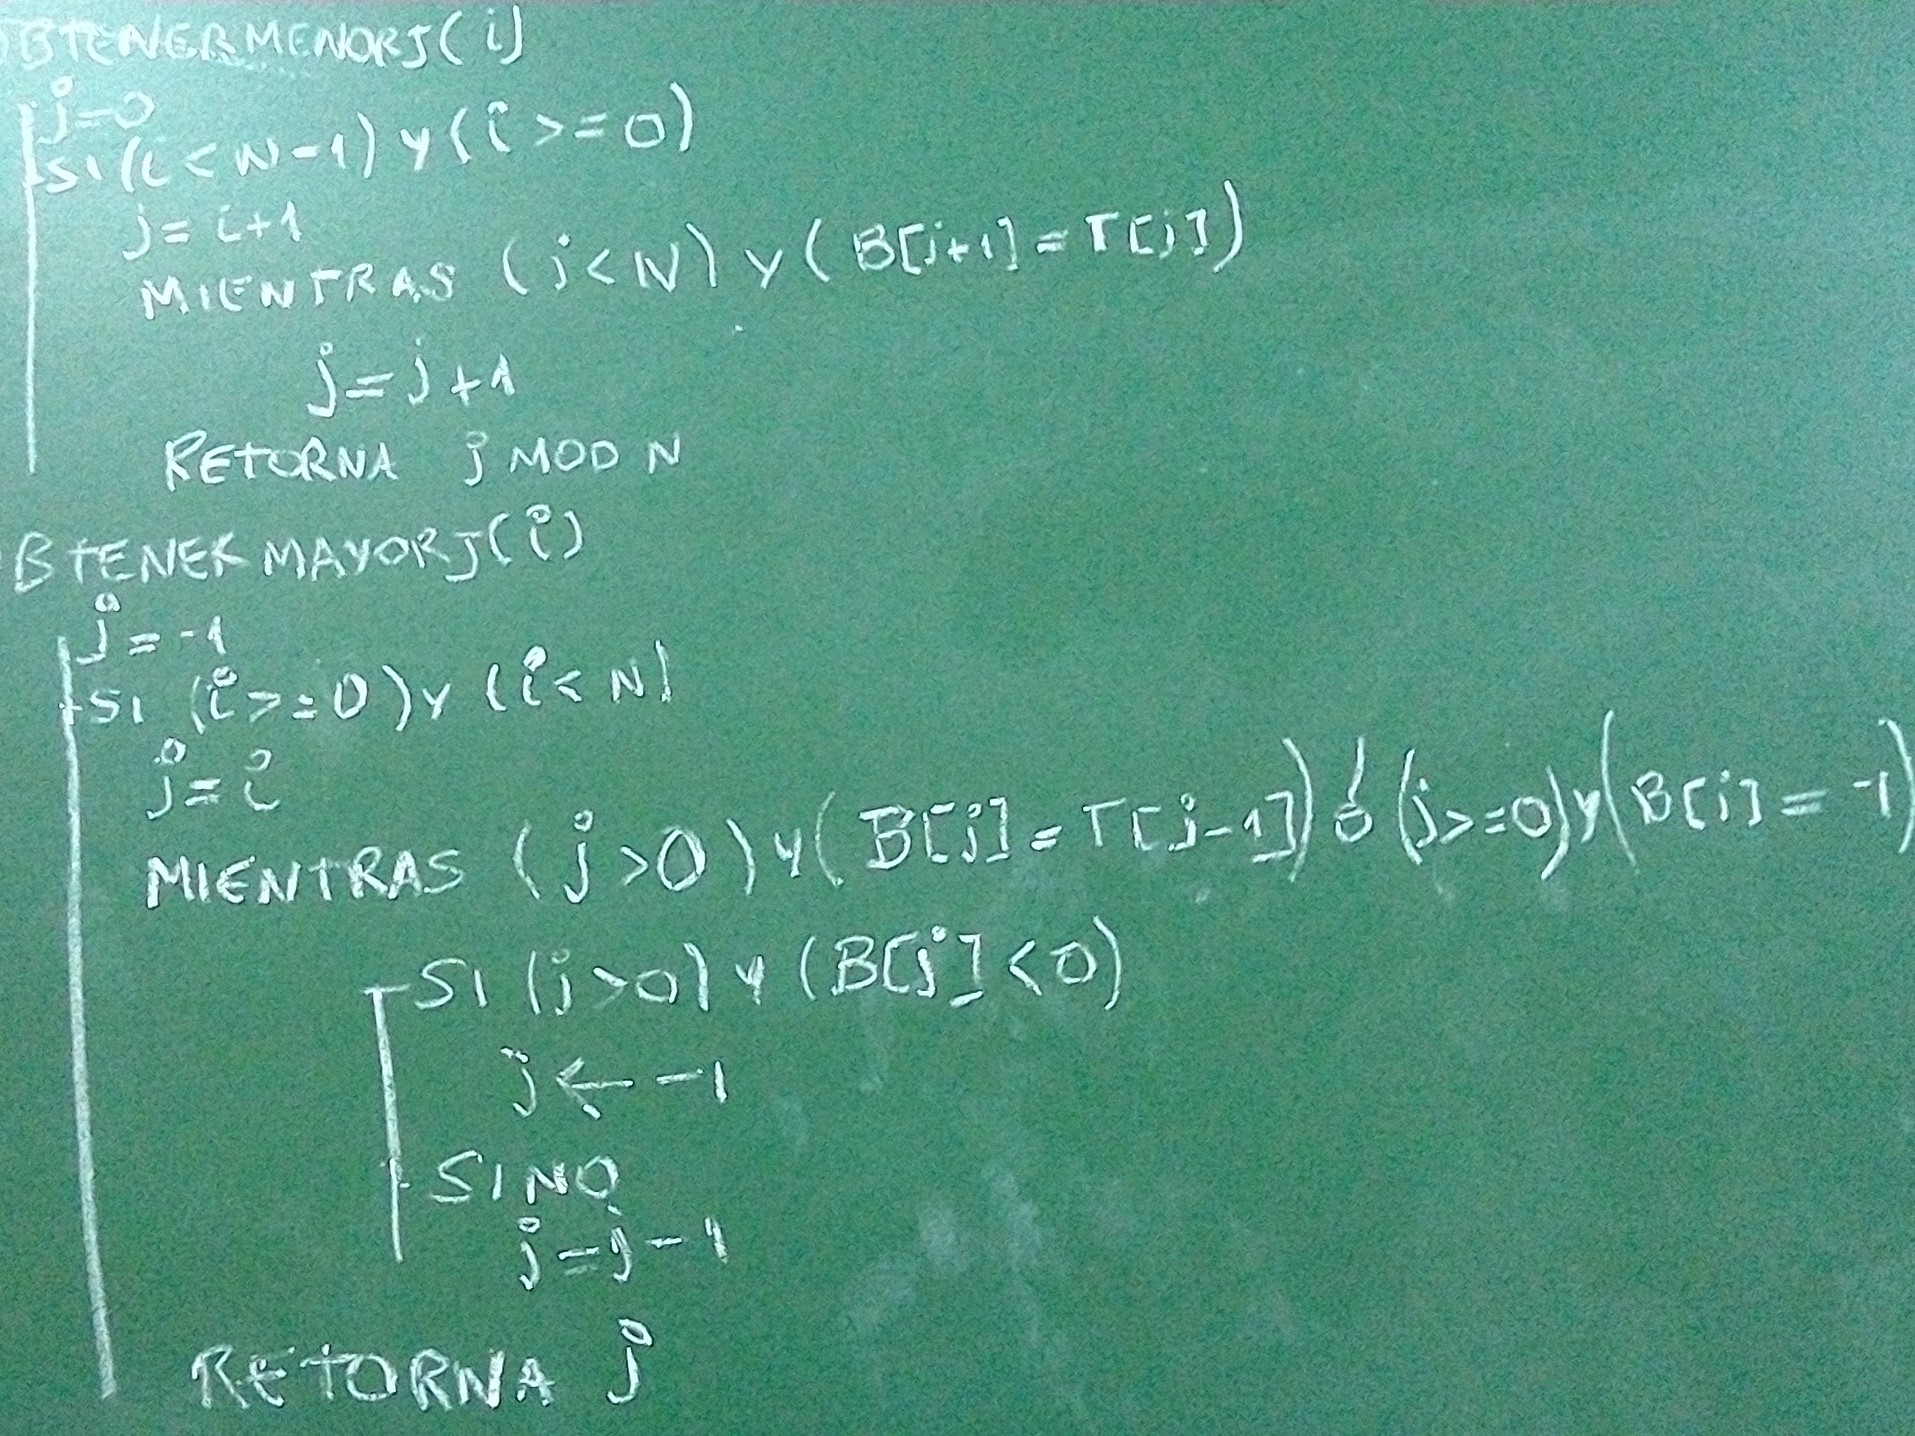 BTENERMENORJ(i)
j=0
SI (i<N-1) y (i>=0)
j=i+1
MIENTRAS (j<N) y (B[j+1]=T[j])
j=j+1
RETORNA j MOD N
BTENER MAYORJ(i)
j=-1
SI (i>=0) y (i<N)
j=i
MIENTRAS (j>0) y (B[j]=T[j-1]) ó (j>=0) y (B[j]=-1)
SI (j>0) y (B[j]<0)
j←-1
SINO
j=j-1
RETORNA j